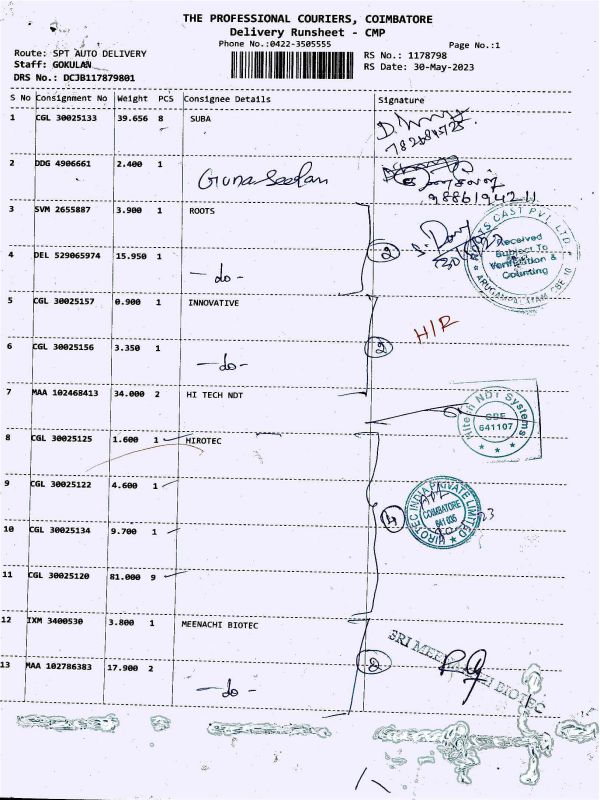 THE PROFESSIONAL COURIERS, COIMBATORE
Delivery Runsheet - CMP
Phone No.:0422-3505555
Page No.:1
Route: SPT AUTO DELIVERY
Staff: GOKULAN
DRS No.: DCJB117879801
RS No.: 1178798
RS Date: 30-May-2023
S No Consignment No Weight PCS Consignee Details Signature
1 CGL 30025133 39.656 8 SUBA
2 DDG 4906661 2.400 1 Gunaseelan
9886194211
3 SVM 2655887 3.900 1 ROOTS
4 DEL 529065974 15.950 1 -do-
2
ROOTS CAST PVT. LTD.
Received
Subject To
Verification &
Counting
ARUGAMPALAYAM CBE 10
5 CGL 30025157 0.900 1 INNOVATIVE
H/R
6 CGL 30025156 3.350 1 -do-
2
7 MAA 102468413 34.000 2 HI TECH NDT
Hitech NDT Systems
CBE
641107
8 CGL 30025125 1.600 1 HIROTEC
9 CGL 30025122 4.600 1
10 CGL 30025134 9.700 1
4
HIROTEC INDIA PRIVATE LIMITED
COIMBATORE
641 006
11 CGL 30025120 81.000 9
12 IXM 3400530 3.800 1 MEENACHI BIOTEC
13 MAA 102786383 17.900 2 -do-
2